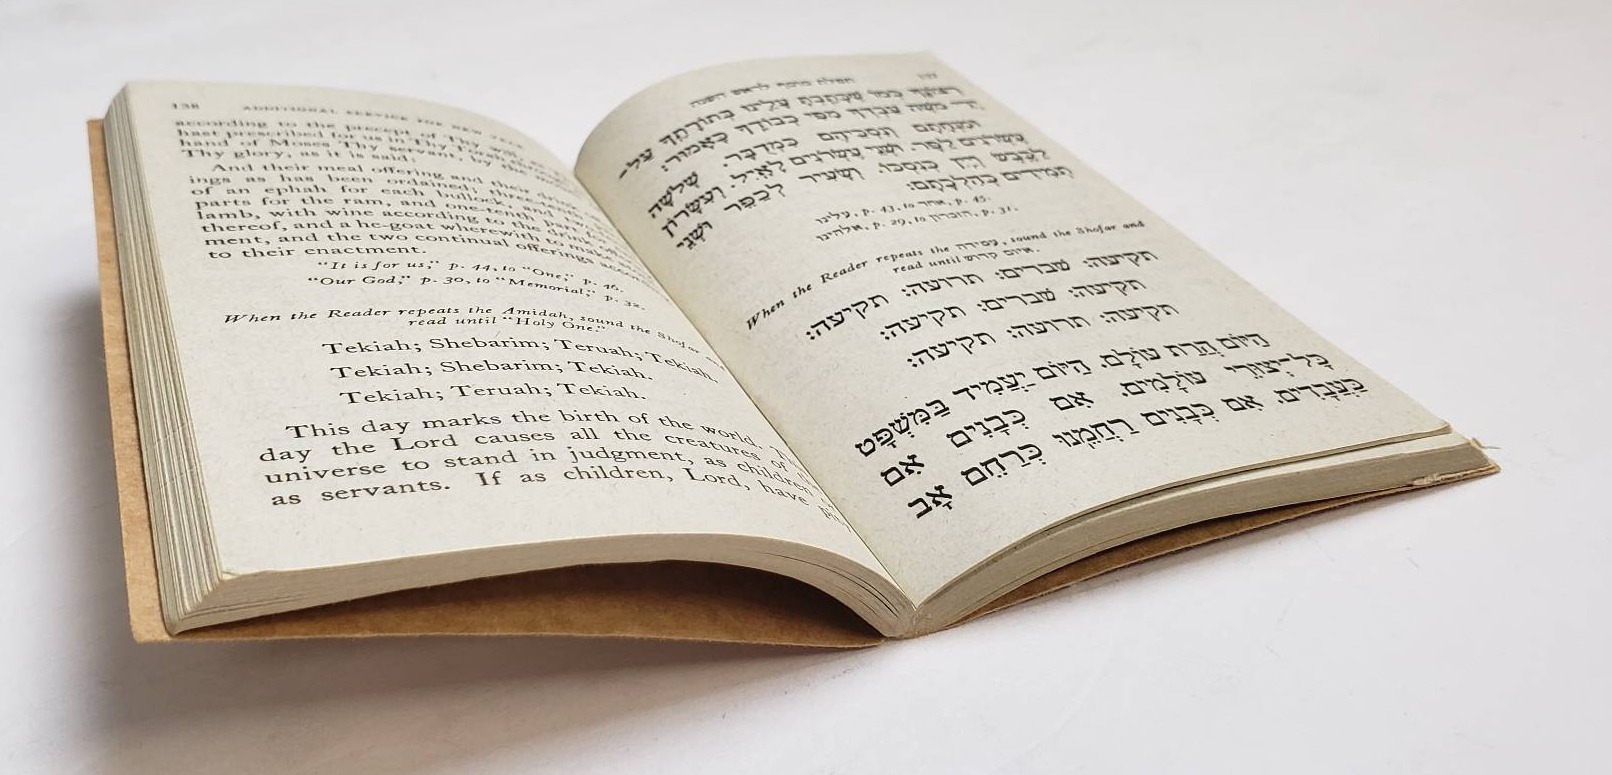 138 ADDITIONAL SERVICE FOR NEW YEAR
according to the precept of Thy will,
hast prescribed for us in Thy Torah
hand of Moses Thy servant, by the
Thy glory, as it is said:
And their meal offering and their drink
ings as has been ordained; three-tenths
of an ephah for each bullock, and
parts for the ram, and one-tenth part for
lamb, with wine according to the drink
thereof, and a he-goat wherewith to make
ment, and the two continual offerings according
to their enactment.
"It is for us," p. 44, to "One," p. 46.
"Our God," p. 30, to "Memorial," p. 32.
When the Reader repeats the Amidah, sound the Shofar and
read until "Holy One."
Tekiah; Shebarim; Teruah; Tekiah.
Tekiah; Shebarim; Tekiah.
Tekiah; Teruah; Tekiah.
This day marks the birth of the world.
day the Lord causes all the creatures of
universe to stand in judgment, as children
as servants. If as children, Lord, have
תפלת מוסף לראש השנה
רצונך כמו שכתבת עלינו בתורתך על־
ידי משה עבדך מפי כבודך כאמור:
ומנחתם ונסכיהם כמדבר. שלשה
עשרונים לפר. ושני עשרונים לאיל. ועשרון
לכבש ויין כנסכו. ושעיר לכפר ושני
תמידים כהלכתם:
עלינו, p. 43, to אחד, p. 45.
אלהינו, p. 29, to הזכרון, p. 31.
When the Reader repeats the עמידה, sound the Shofar and
read until איום קדוש.
תקיעה: שברים: תרועה: תקיעה:
תקיעה: שברים: תקיעה:
תקיעה: תרועה: תקיעה:
הַיּוֹם הֲרַת עוֹלָם. הַיּוֹם יַעֲמִיד בַּמִּשְׁפָּט
כָּל־יְצוּרֵי עוֹלָמִים. אִם כְּבָנִים אִם
כַּעֲבָדִים. אִם כְּבָנִים רַחֲמֵנוּ כְּרַחֵם אָב